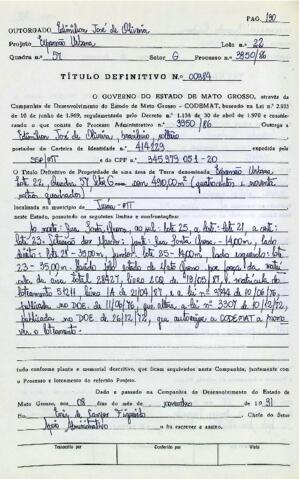 PAG. 190
OUTORGADO Edimilson José de Oliveira
Projeto Expansão Urbana Lote n.o 22
Quadra n.o 57 Setor G Processo n.o 3950/86
TÍTULO DEFINITIVO N.o 00384
O GOVERNO DO ESTADO DE MATO GROSSO, através da
Companhia de Desenvolvimento do Estado de Mato Grosso - CODEMAT, baseado na Lei n.o
10 de junho de 1.969, regulamentado pelo Decreto n.o 1.136 de 30 de abril de 1.970 e considerando
o que consta do Processo Administrativo n.o 3950/86 Outorga a
Edimilson José de Oliveira, brasileiro, solteiro
portador da Carteira de Identidade n.o 414229 expedida pela
SSP/MT e do CPF n.o 345.979 051-20
O Título Definitivo de Propriedade de uma área de Terra denominada Expansão Urbana
Lote 22, Quadra 57 Setor G com 490,00 m² (quatrocentos e noventa
metros quadrados)
localizada no município de Juína-MT
neste Estado, possuindo os seguintes limites e confrontações:
ao norte: Rua Ponta Grossa, ao sul: lote 25, a leste: lote 21, a oeste:
lote 23. frente: Rua Ponta Grossa - 14,00m, lado
direito: lote 21 - 35,00m, fundos: lote 25 - 14,00m lado esquerdo: lote
23 - 35,00m. pelo estado de Mato Grosso por força da
de área total 28427, livro 2CQ de 19/05/87, matrícula do
loteamento 51211, livro 1A de 21/04/87 e a lei n.o de 10/06/76,
publicada no DOE de 11/06/76, que altera a lei n.o 3307 de 10/12/72,
publicada no DOE de 26/12/72, que autoriza a CODEMAT a
ver o loteamento.
tudo conforme planta e memorial descritivo, que ficam arquivados nesta Companhia, juntamente com
o Processo e loteamento do referido Projeto.
Dado e passado na Companhia de Desenvolvimento do Estado de
Mato Grosso, aos 08 dias do mês de novembro de 1.991
Eu, de Campos Figueiredo Chefe do Setor
Apoio Administrativo o fiz escrever e assino.
Transcrito por Conferido por Visto